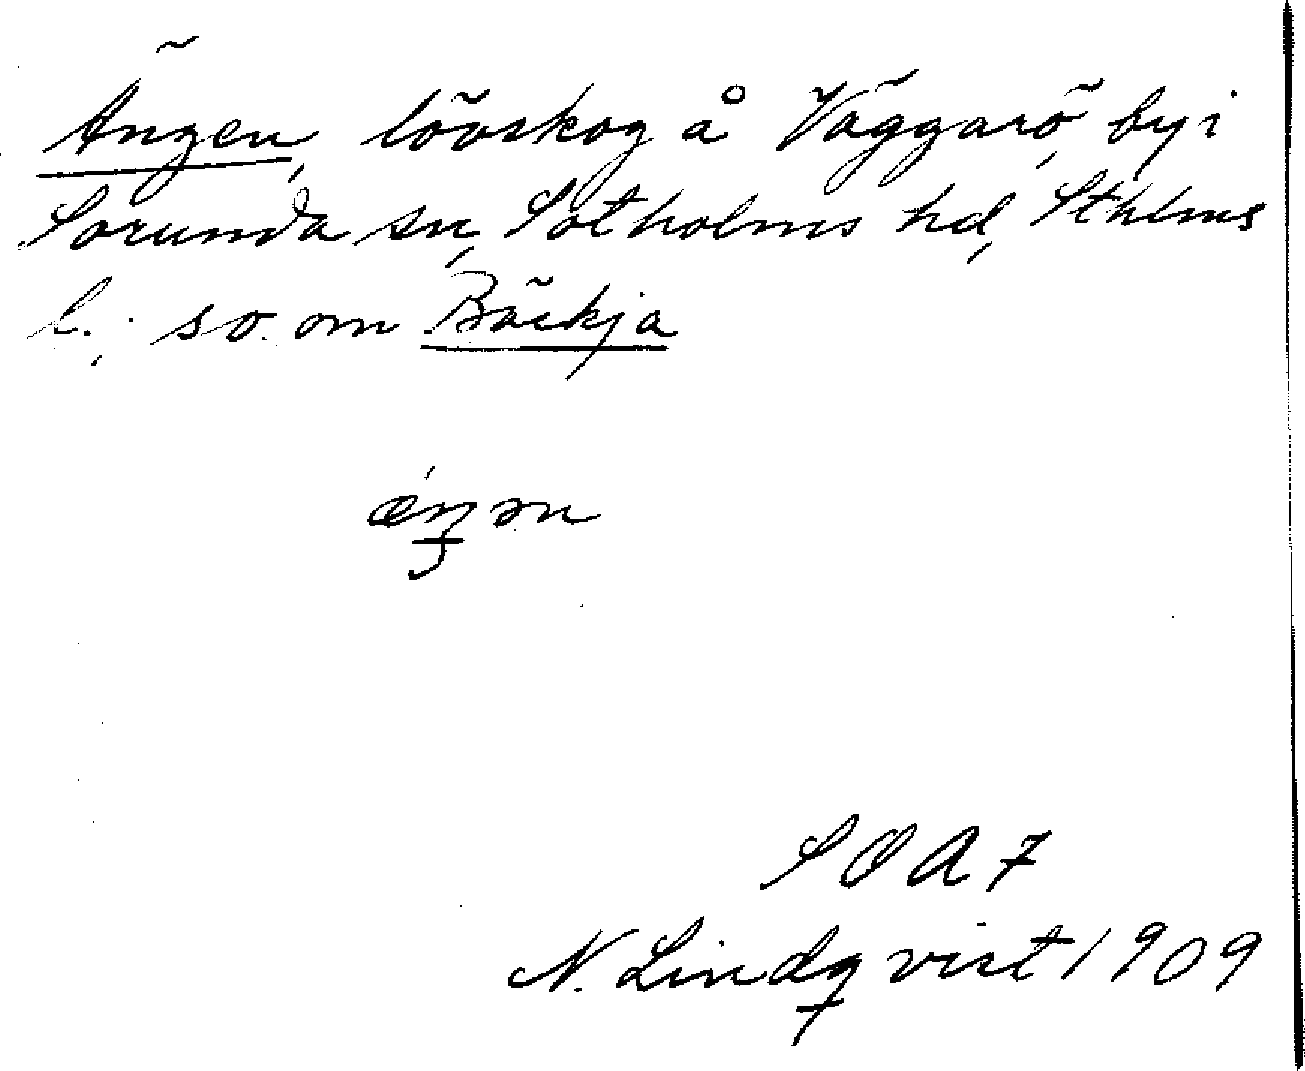 Ängen, lövskog å Väggarö, by i
Sorunda sn, Sotholms hd, Sthlms
l.; so. om Bäckja
æ´ŋən
SOA 7
N. Lindqvist 1909